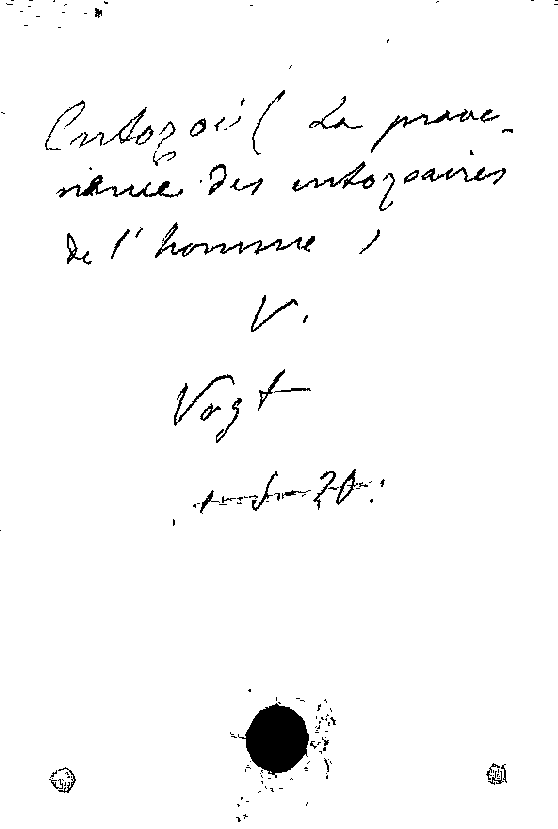 Entozoi (La prove-
nance des entozoaires
de l'homme)
V.
Vogt